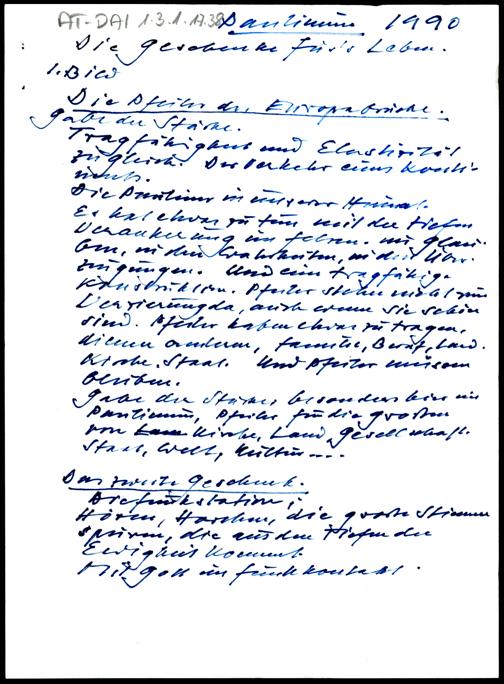 AT-DAI 1.3.1.1738 Paulinum 1990
Die Geschenke für's Leben.
1. Bild
Die Pfeiler der Europabrücke.
Gabe der Stärke.
Tragfähigkeit und Elastizität
zugleich. Der Verkehr eines Konti-
nents.
Die Pauliner in unserer Heimat.
Es hat etwas zu tun mit der tiefen
Verankerung im Felsen. im Glau-
ben, in den Wahrheiten, in den Über-
zeugungen. Und eine tragfähige
Konstruktion. Pfeiler stehn nicht zur
Verzierung da, auch wenn sie schön
sind. Pfeiler haben etwas zu tragen,
dienen anderen, Familie, Beruf, Land.
Kirche. Staat. Und Pfeiler müssen
bleiben.
Gabe der Stärke, besonders hier im
Paulinum, Pfeiler für die grossen
von Kirche, Land, Gesellschaft.
Staat, Welt, Kultur....
Das zweite Geschenk.
Die Funkstation;
Hören, Horchen, die grosse Stimme
spüren, die aus den Tiefen der
Ewigkeit kommt.
Mit Gott im Funkkontakt.